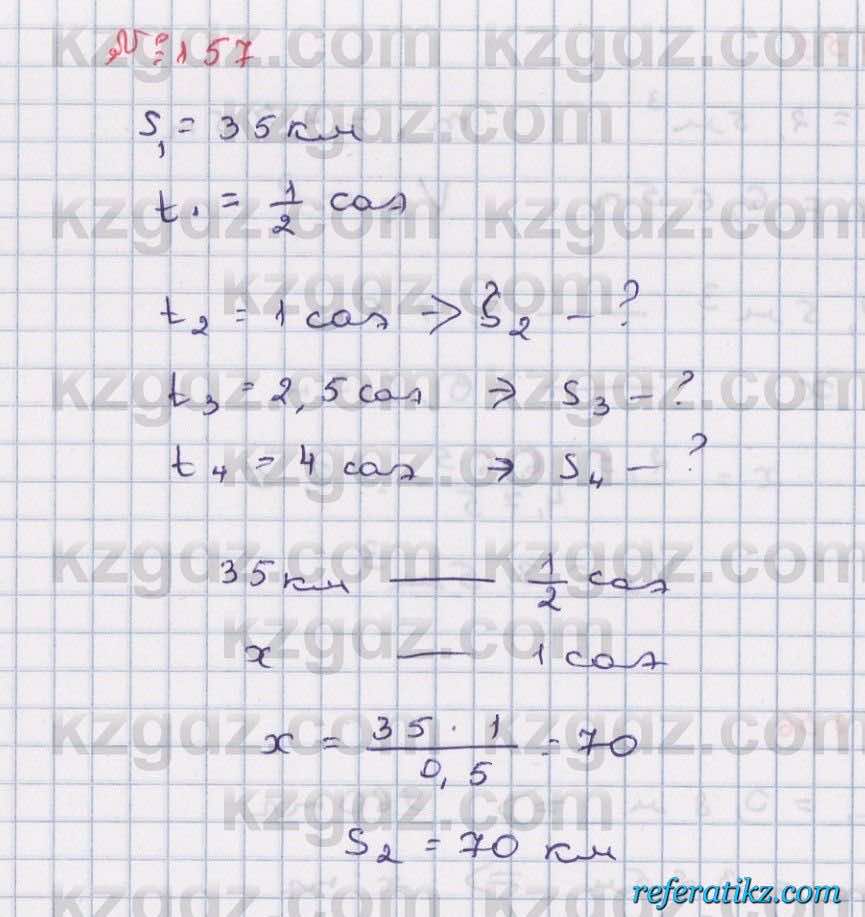 №157
S₁ = 35 км
t₁ = 1/2 сағ
t₂ = 1 сағ → S₂ – ?
t₃ = 2,5 сағ → S₃ – ?
t₄ = 4 сағ → S₄ – ?
35 км — 1/2 сағ
x — 1 сағ
x = 35 · 1 / 0,5 = 70
S₂ = 70 км
kzgdz.com
referatikz.com